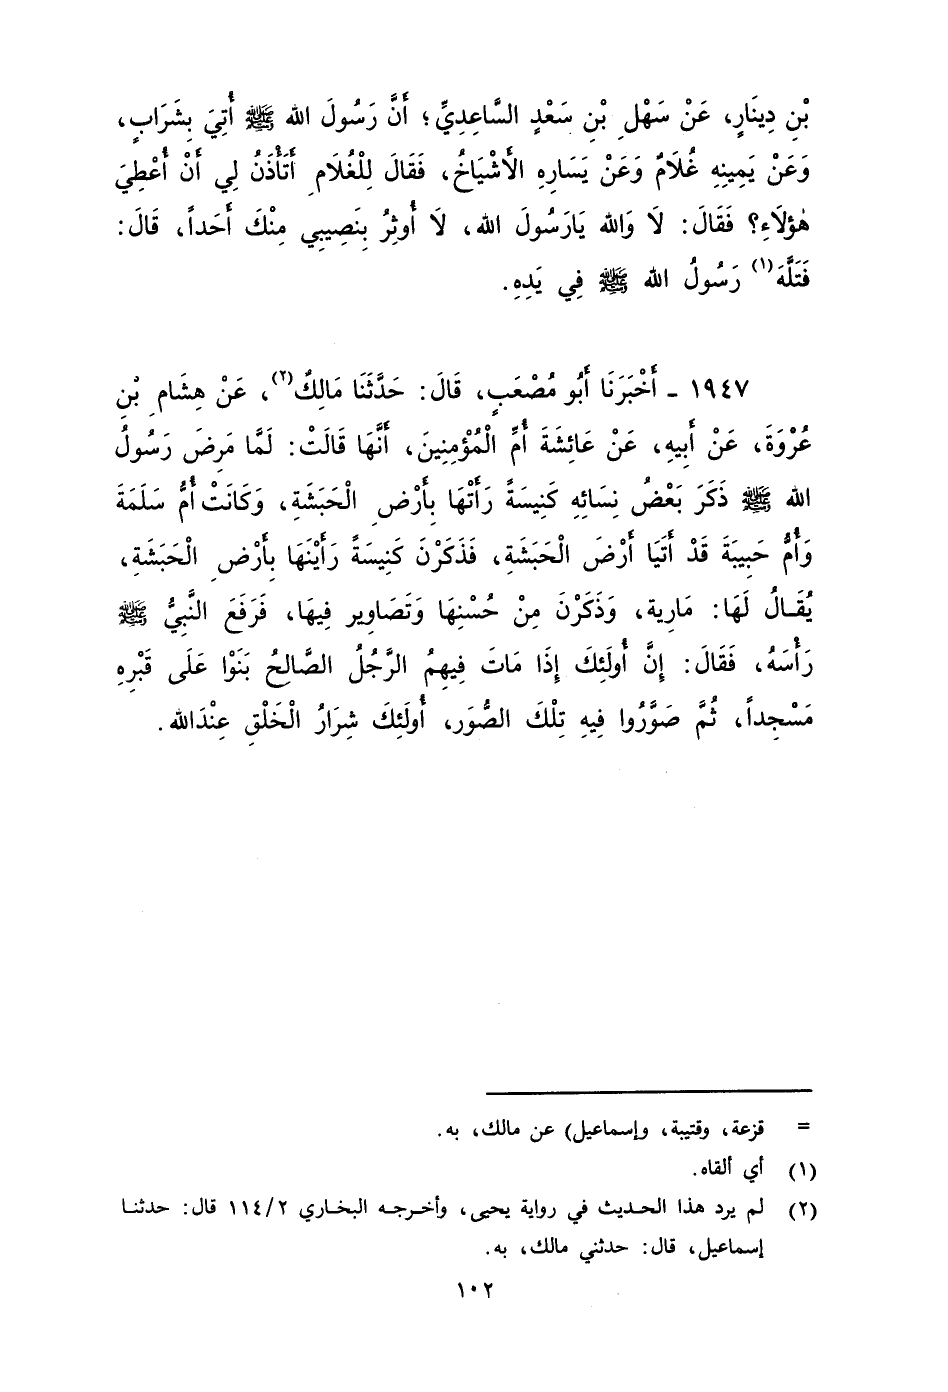 بْنِ دِينَارٍ، عَنْ سَهْلِ بْنِ سَعْدٍ السَّاعِدِيِّ؛ أَنَّ رَسُولَ الله ﷺ أُتِيَ بِشَرَابٍ،
وَعَنْ يَمِينِهِ غُلَامٌ وَعَنْ يَسَارِهِ الأَشْيَاخُ، فَقَالَ لِلْغُلَامِ أَتَأْذَنُ لِي أَنْ أُعْطِيَ
هٰؤلَاءِ؟ فَقَالَ: لَا وَالله يَارَسُولَ الله، لَا أُوثِرُ بِنَصِيبِي مِنْكَ أَحَداً، قَالَ:
فَتَلَّهَ(١) رَسُولُ الله ﷺ فِي يَدِهِ.
١٩٤٧ - أَخْبَرَنَا أَبُو مُصْعَبٍ، قَالَ: حَدَّثَنَا مَالِكٌ(٢)، عَنْ هِشَامِ بْنِ
عُرْوَةَ، عَنْ أَبِيهِ، عَنْ عَائِشَةَ أُمِّ الْمُؤْمِنِينَ، أَنَّهَا قَالَتْ: لَمَّا مَرِضَ رَسُولُ
الله ﷺ ذَكَرَ بَعْضُ نِسَائِهِ كَنِيسَةً رَأَتْهَا بِأَرْضِ الْحَبَشَةِ، وَكَانَتْ أُمُّ سَلَمَةَ
وَأُمُّ حَبِيبَةَ قَدْ أَتَيَا أَرْضَ الْحَبَشَةِ، فَذَكَرْنَ كَنِيسَةً رَأَيْنَهَا بِأَرْضِ الْحَبَشَةِ،
يُقَالُ لَهَا: مَارية، وَذَكَرْنَ مِنْ حُسْنِهَا وَتَصَاوِير فِيهَا، فَرَفَعَ النَّبِيُّ ﷺ
رَأْسَهُ، فَقَالَ: إِنَّ أُولَئِكَ إِذَا مَاتَ فِيهِمُ الرَّجُلُ الصَّالِحُ بَنَوْا عَلَى قَبْرِهِ
مَسْجِداً، ثُمَّ صَوَّرُوا فِيهِ تِلْكَ الصُّوَر، أُولَئِكَ شِرَارُ الْخَلْقِ عِنْدَالله.
= قزعة، وقتيبة، وإسماعيل) عن مالك، به.
(١) أي ألقاه.
(٢) لم يرد هذا الحديث في رواية يحيى، وأخرجه البخاري ١١٤/٢ قال: حدثنا
إسماعيل، قال: حدثني مالك، به.
١٠٢